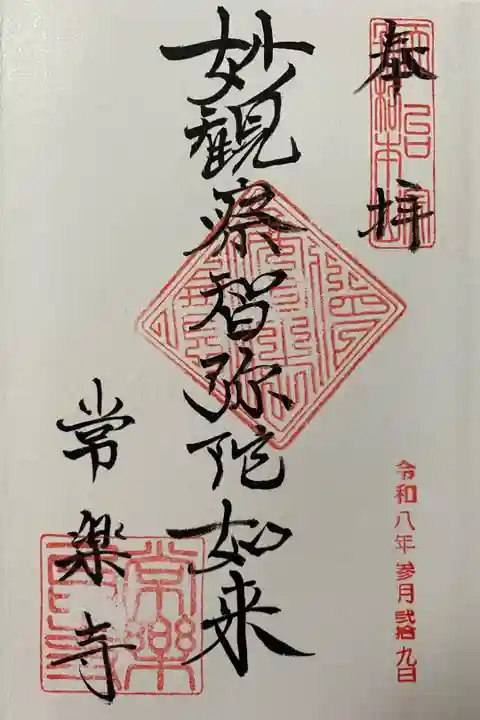 奉拝
妙観察智弥陀如来
常楽寺
令和八年参月弐拾九日
常樂